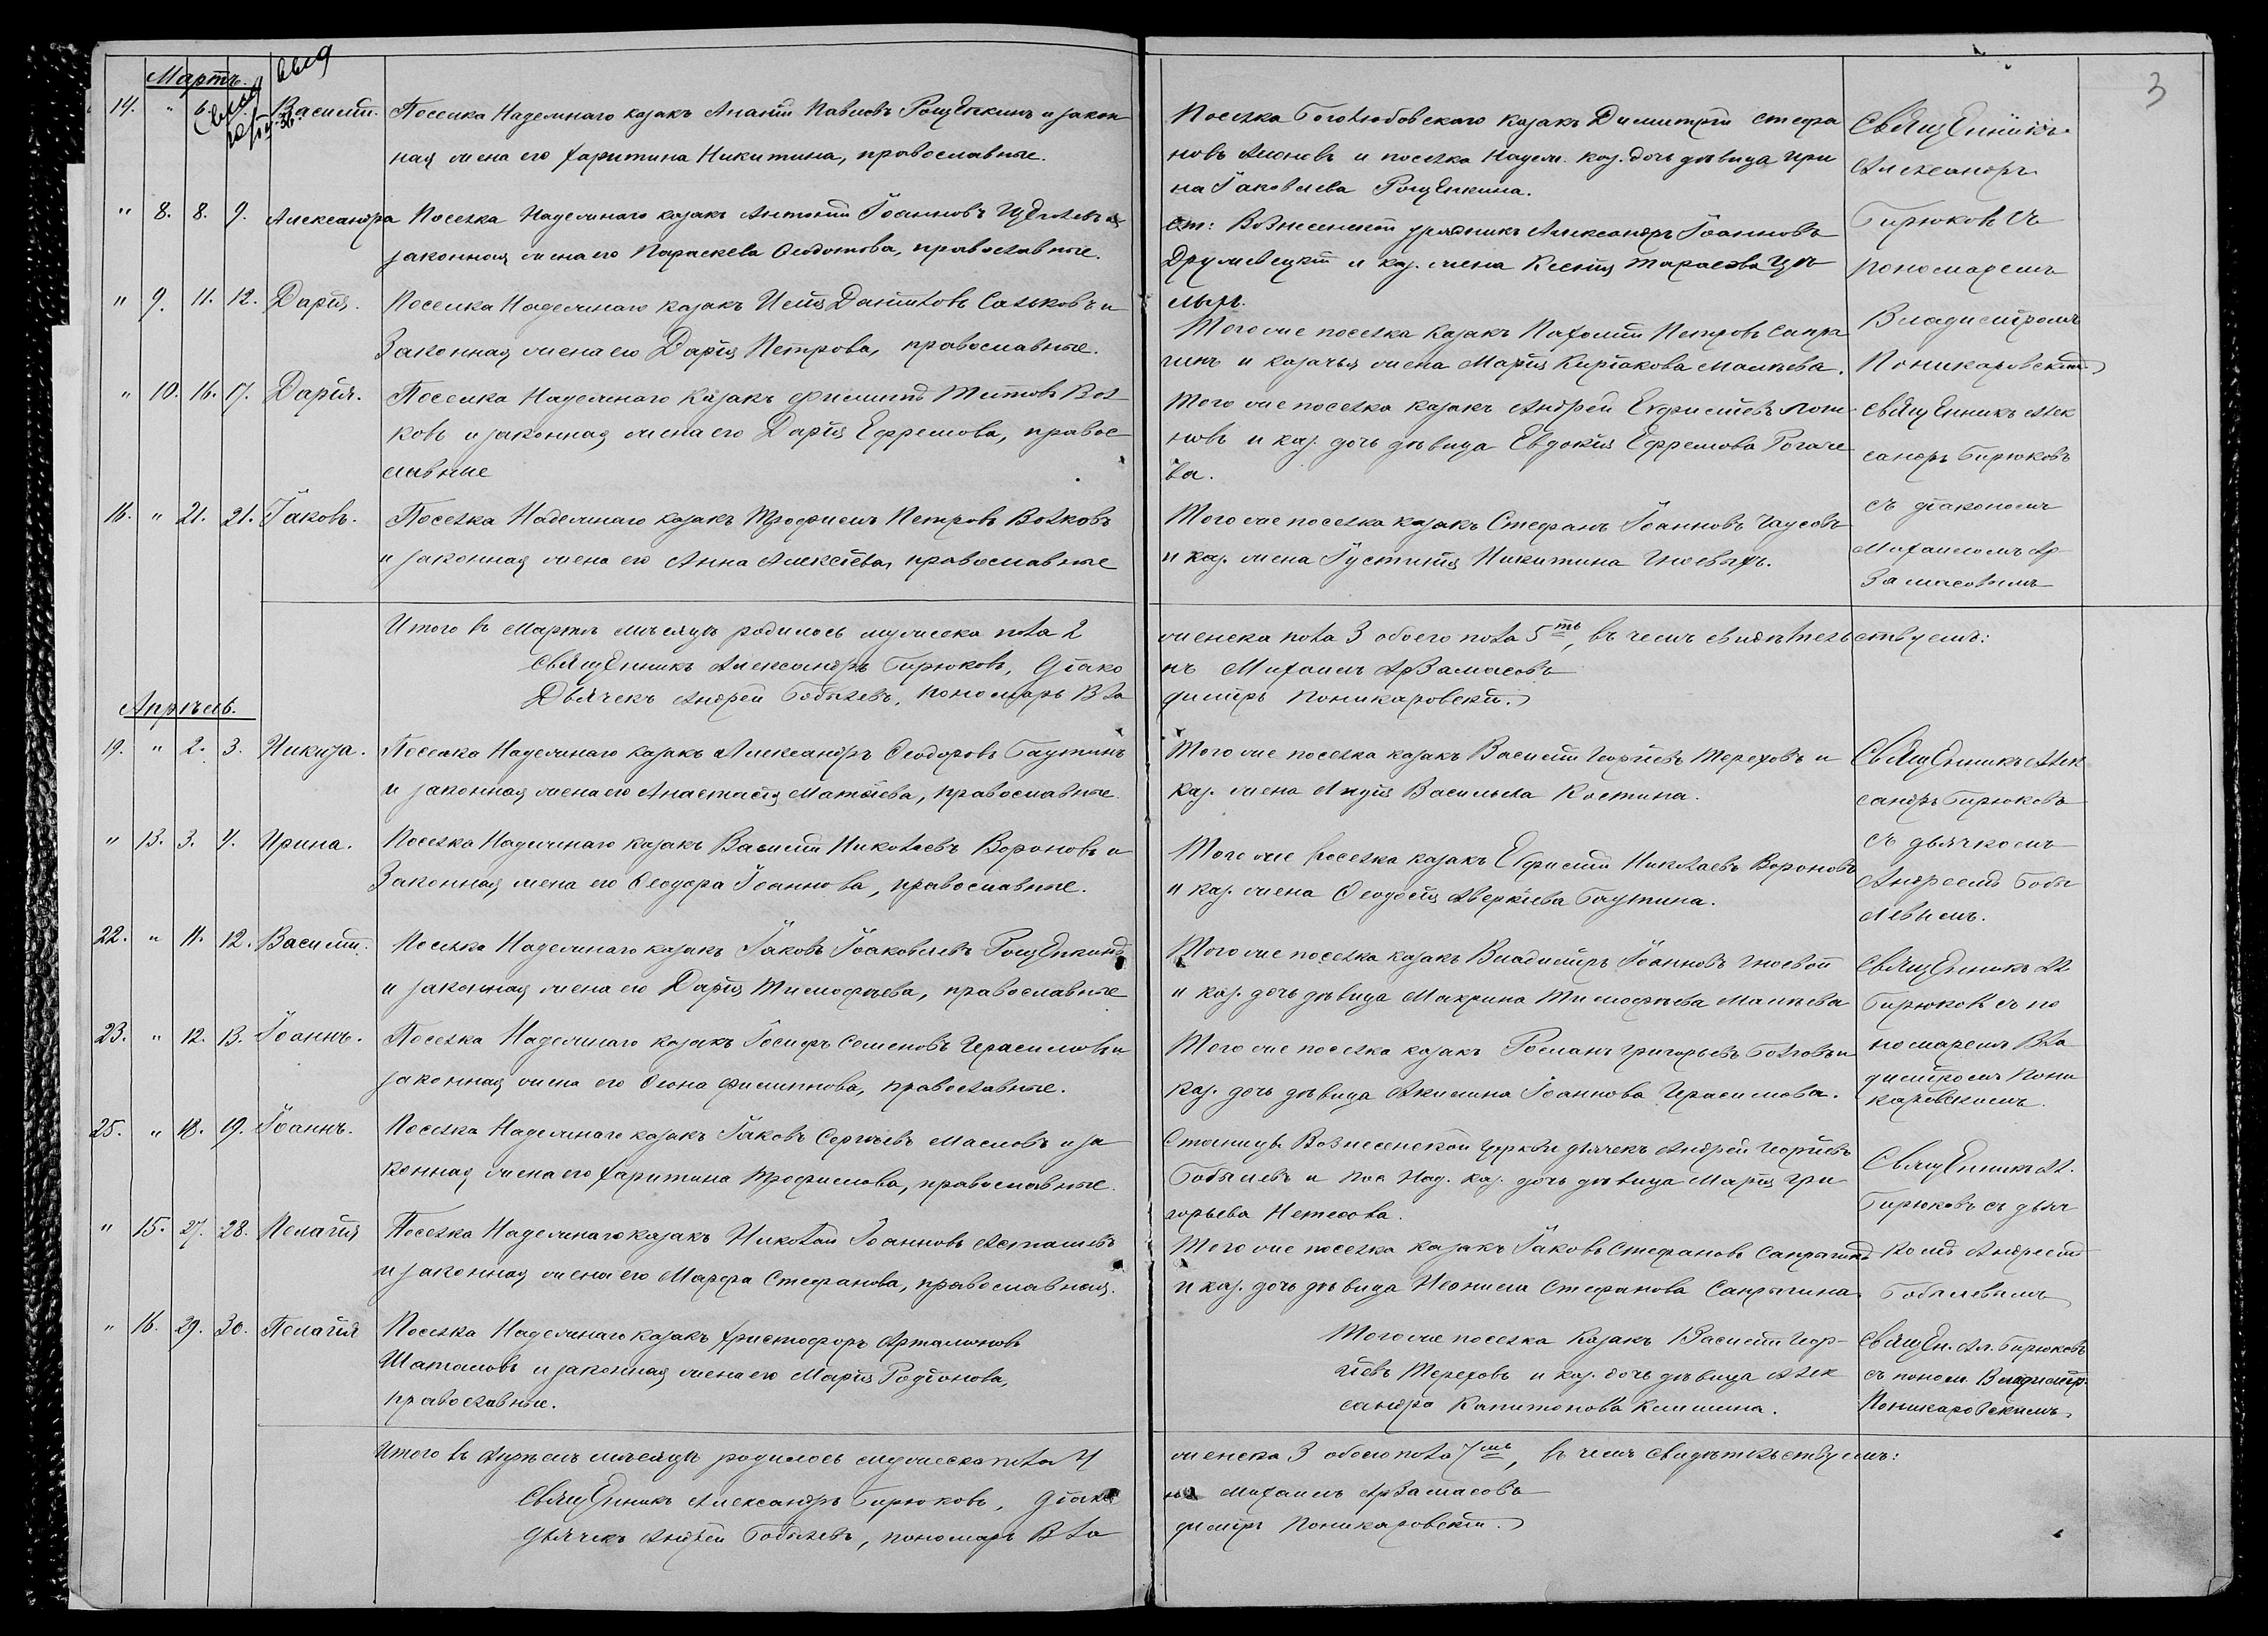 3
Мартъ.
14. " 6. Василій. Поселка Надежнаго казакъ Ананій Павловъ Рощепкинъ и закон
ная жена его Харитина Никитина, православные.
Поселка Боголюбовскаго казакъ Димитрій Стефа
новъ и поселка Надеж. каз. дочь дѣвица Ири
на Іаковлева Рощепкина.
Священникъ
Александръ
Бирюковъ съ
пономаремъ
Владиміромъ
Поникаровскимъ
" 8. 8. 9. Александра Поселка Надежнаго казакъ Антоній Іоанновъ Щеголевъ и
законная жена его Параскева Ѳедотова, православные.
Ст: Вознесенской урядникъ Александръ Іоанновъ
и каз. жена Ксенія Тарасова
" 9. 11. 12. Дарія. Поселка Надежнаго казакъ Исаія Даніиловъ Сальковъ и
Законная жена его Дарія Петрова, православные.
Того же поселка казакъ Пахомій Петровъ Сапры
гинъ и казачья жена Марія Киріакова Малѣева.
" 10. 16. 17. Дарія. Поселка Надежнаго казакъ Филиппъ Титовъ Вол
ковъ и законная жена его Дарія Ефремова, правос
лавные
Того же поселка казакъ Андрей Евфиміевъ
новъ и каз. дочь дѣвица Евдокія Ефремова Рогаче
ва.
Священникъ Алек
сандръ Бирюковъ
съ діакономъ
Михаиломъ Ар
замасовымъ
16. " 21. 21. Іаковъ. Поселка Надежнаго казакъ Трофимъ Петровъ Волковъ
и законная жена его Анна Алексіева, православные
Того же поселка казакъ Стефанъ Іоанновъ Чаусовъ
и каз. жена Іустинія Никитина Гноевыхъ.
Итого въ Мартѣ мѣсяцѣ родилось мужеска пола 2
женска пола 3 обоего пола 5ть, въ чемъ свидѣтельствуемъ:
Священникъ Александръ Бирюковъ, Діако
нъ Михаилъ Арзамасовъ
Дьячекъ Андрей Бобылевъ, пономарь Вла
диміръ Поникаровскій.
Апрѣль.
19. " 2. 3. Никита. Поселка Надежнаго казакъ Александръ Ѳеодоровъ Баутинъ
и законная жена его Анастасія Матѳіева, православные
Того же поселка казакъ Василій Георгіевъ Тереховъ и
каз. жена Васильева Костина.
Священникъ Алек
сандръ Бирюковъ
съ дьячкомъ
Андреемъ Бобы
левымъ.
" 13. 3. 4. Ирина. Поселка Надежнаго казакъ Василій Николаевъ Вороновъ и
Законная жена его Ѳеодора Іоаннова, православные.
Того же поселка казакъ Евфимій Николаевъ Вороновъ
и каз. жена Ѳеодосія Аверкіева Баутина.
22. " 11. 12. Василій. Поселка Надежнаго казакъ Іаковъ Іаковлевъ Рощепкинъ
и законная жена его Дарія Тимофѣева, православные
Того же поселка казакъ Владиміръ Іоанновъ Гноевой
и каз. дочь дѣвица Макрина Тимофѣева Малѣева
Священникъ Ал.
Бирюковъ съ по
номаремъ Вла
диміромъ Пони
каровскимъ.
23. " 12. 13. Іоаннъ. Поселка Надежнаго казакъ Іосифъ Семеновъ Герасимовъ и
законная жена его Ѳеона Филиппова, православные.
Того же поселка казакъ Романъ Григорьевъ и
каз. дочь дѣвица Акилина Іоаннова Герасимова.
25. " 18. 19. Іоаннъ. Поселка Надежнаго казакъ Іаковъ Сергіевъ Масловъ и за
конная жена его Харитина Трофимова, православные.
Станицы Вознесенской церкви дьячекъ Андрей Георгіевъ
Бобылевъ и пос. Над. каз. дочь дѣвица Марія Гри
горьева Нетесова.
Священникъ Ал.
Бирюковъ съ дьяч
комъ Андреемъ
Бобылевымъ
" 15. 27. 28. Пелагія Поселка Надежнаго казакъ Николай Іоанновъ Асташевъ
и законная жена его Марфа Стефанова, православная.
Того же поселка казакъ Іаковъ Стефановъ Сапрыгинъ
и каз. дочь дѣвица Неонила Стефанова Сапрыгина
" 16. 29. 30. Пелагія Поселка Надежнаго казакъ Христофоръ Артамоновъ
Шаталовъ и законная жена его Марія Родіонова,
православные.
Того же поселка казакъ Василій Геор-
гіевъ Тереховъ и каз. дочь дѣвица Алек
сандра Капитонова Климина.
Священ. Ал. Бирюковъ
съ поном. Владимір.
Поникаровскимъ
Итого въ Апрѣлѣ мѣсяцѣ родилось мужеска пола 4
женска 3 обоего пола 7мь, въ чемъ свидѣтельствуемъ:
Священникъ Александръ Бирюковъ, Діако
нъ Михаилъ Арзамасовъ
дьячекъ Андрей Бобылевъ, пономарь Вла
диміръ Поникаровскій.